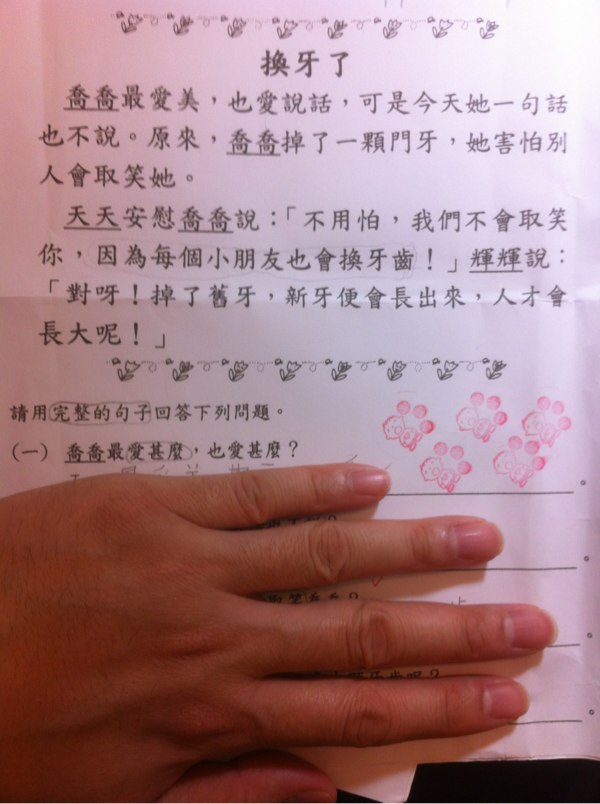 換牙了
喬喬最愛美，也愛說話，可是今天她一句話
也不說。原來，喬喬掉了一顆門牙，她害怕別
人會取笑她。
天天安慰喬喬說：「不用怕，我們不會取笑
你，因為每個小朋友也會換牙齒！」輝輝說：
「對呀！掉了舊牙，新牙便會長出來，人才會
長大呢！」
請用完整的句子回答下列問題。
（一） 喬喬最愛甚麼，也愛甚麼？